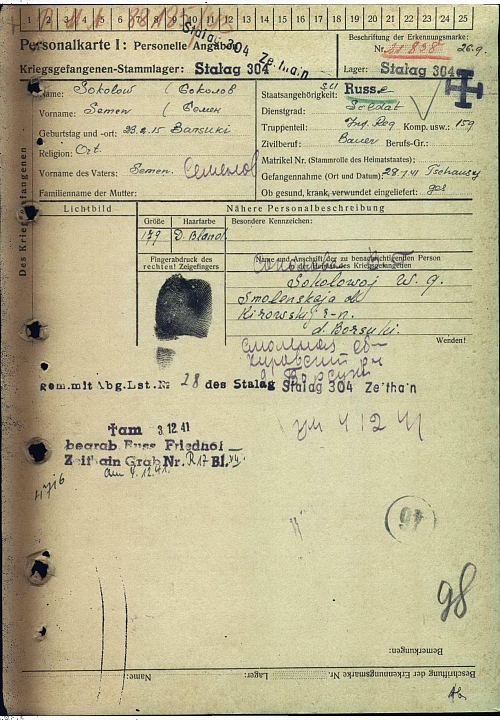 1 2 3 4 5 6 7 8 9 10 11 12 13 14 15 16 17 18 19 20 21 22 23 24 25
Stalag 304 Zeithain
Personalkarte I: Personelle Angaben
Beschriftung der Erkennungsmarke:
Nr. 26.9.
Kriegsgefangenen-Stammlager: Stalag 304
Lager: Stalag 304
Des Kriegsgefangenen
Name: Sokolow (Соколов
Staatsangehörigkeit: Russe
Vorname: Semen (Семен
Dienstgrad: Soldat
Truppenteil: Inf. Reg Komp. usw.: 159
Geburtstag und -ort: 23.2.15 Barsuki
Zivilberuf: Bauer Berufs-Gr.:
Religion: Ort.
Matrikel Nr. (Stammrolle des Heimatstaates):
Vorname des Vaters: Semen. Семенов
Gefangennahme (Ort und Datum): 28.7.41 Tschausy
Familienname der Mutter:
Ob gesund, krank, verwundet eingeliefert: ges
Lichtbild
Nähere Personalbeschreibung
Größe Haarfarbe Besondere Kennzeichen:
179 D. Bland
Fingerabdruck des rechten! Zeigefingers
Name und Anschrift der zu benachrichtigenden Person
in der Heimat des Kriegsgefangenen
Sokolowoj W. g.
Smolenskaja
Kirowskij r-n.
d. Borsuki.
Wenden!
gem. mit Abg. Lst. № 28 des Stalag Stalag 304 Zeithain
†am 3.12.41
begrab. Russ. Friedhof
Zeithain Grab Nr. R 17 Bl.
am 4.12.41.
46
98
Bemerkungen:
Name: Lager: Beschriftung der Erkennungsmarke Nr.